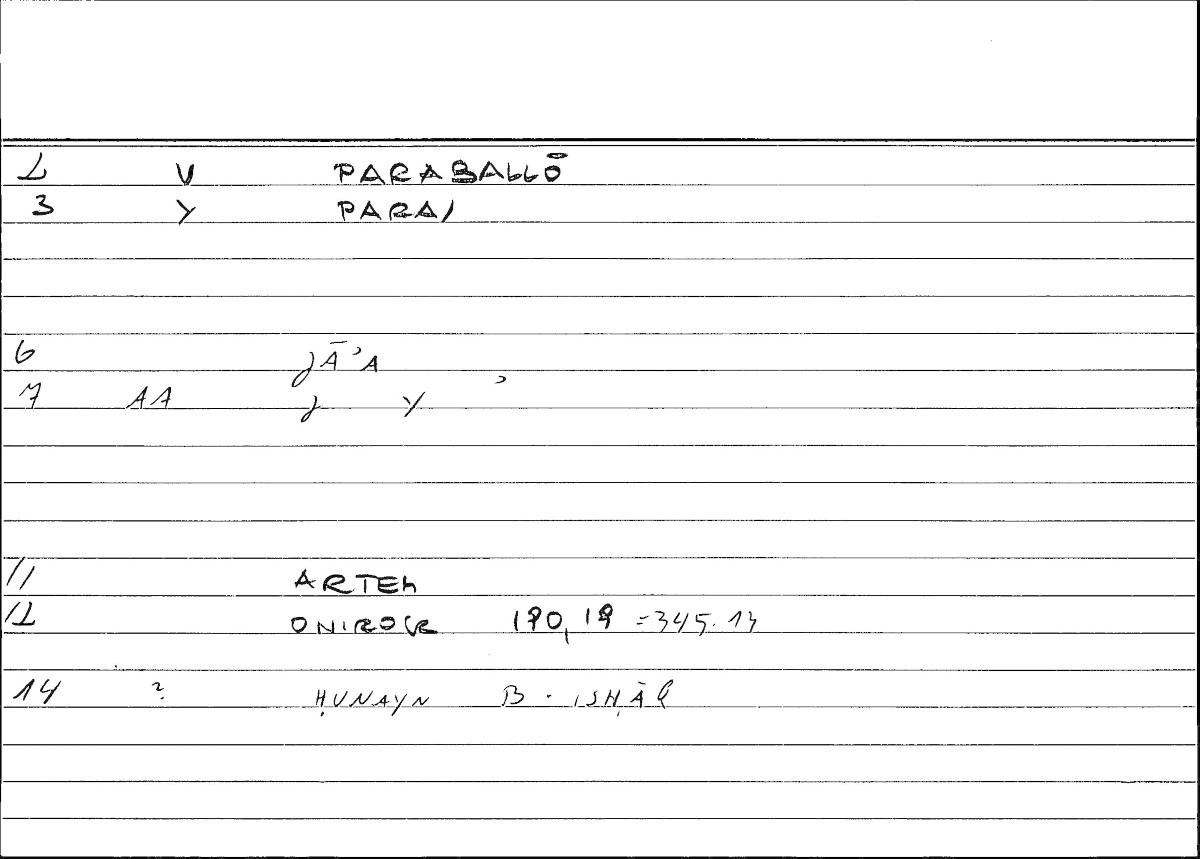 2 V PARABALLŌ
3 Y PARA/
6 JĀʾA
7 AA J Y ʾ
11 ARTEM
12 ONIROCR 190,19 =345.13
14 ? ḤUNAYN B. ISḤĀQ